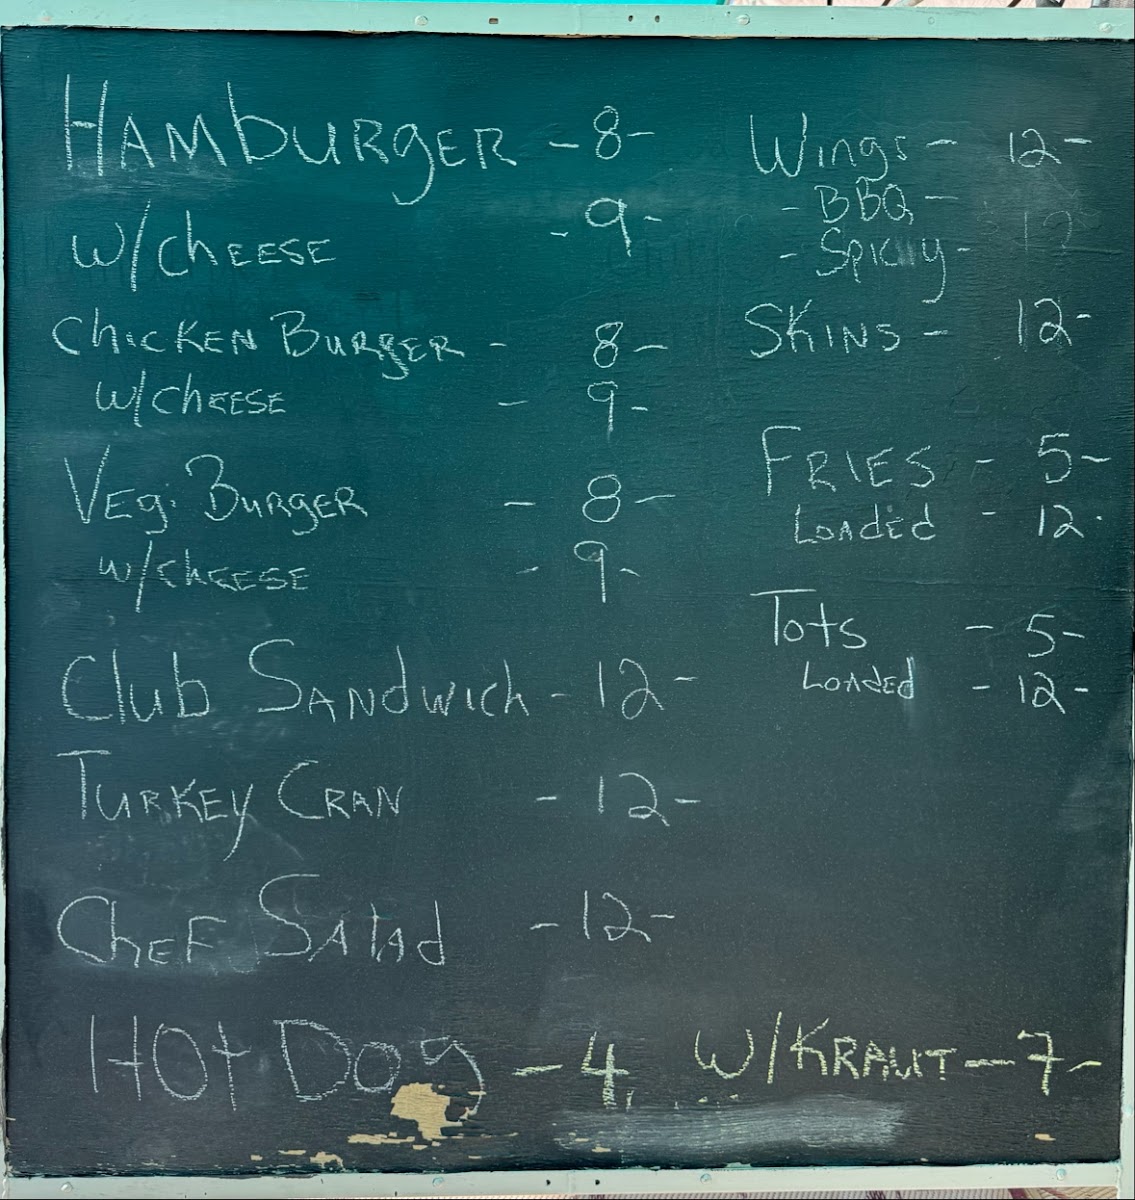 HAMBURGER - 8-
w/CHEESE - 9-
CHICKEN BURGER - 8-
w/CHEESE - 9-
VEG. BURGER - 8-
w/CHEESE - 9-
Club SANDWICH - 12-
TURKEY CRAN - 12-
CHEF SALAD - 12-
HOt DOg - 4 W/KRAUT - 7-
Wings - 12-
- BBQ -
- Spicy -
SKINS - 12-
FRIES - 5-
LOADED - 12.
Tots - 5-
LOADED - 12-